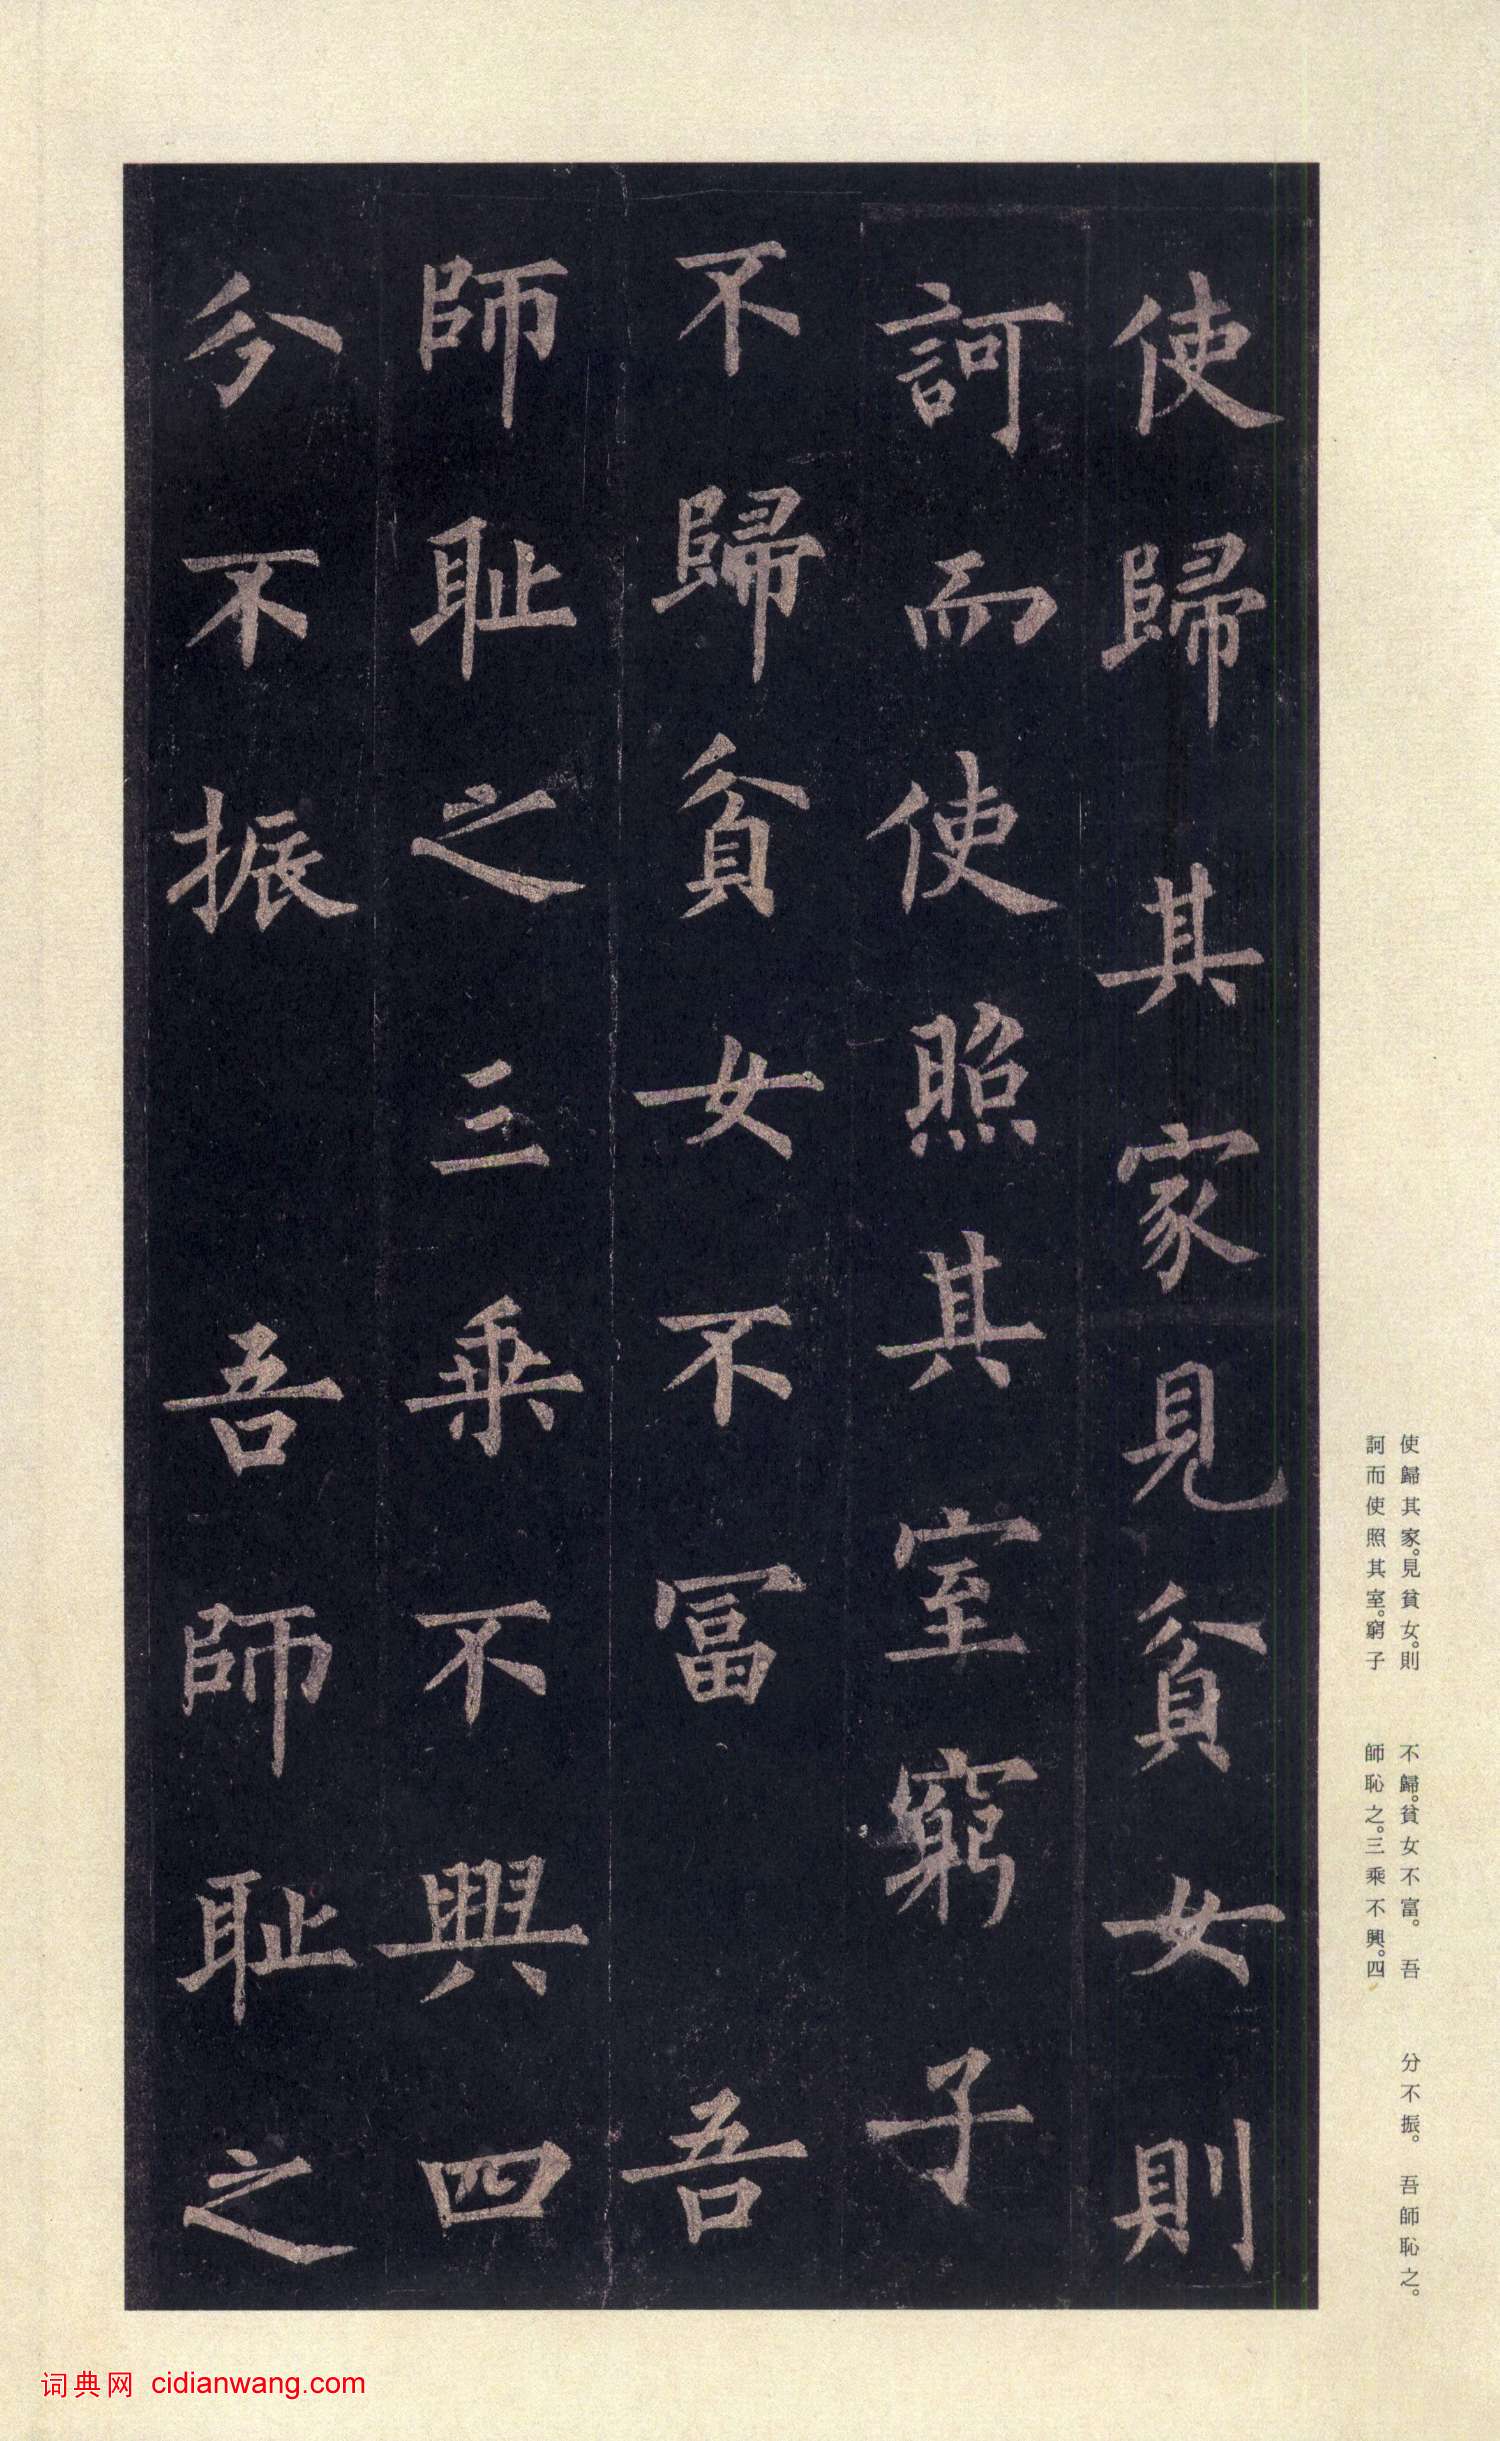 使歸其家見貧女則
訶而使照其室窮子
不歸貧女不冨吾
師耻之三乗不興四
分不振吾師耻之
使歸其家。見貧女。則
訶而使照其室。窮子
不歸。貧女不富。吾
師恥之。三乘不興。四
分不振。吾師恥之。
词典网 cidianwang.com